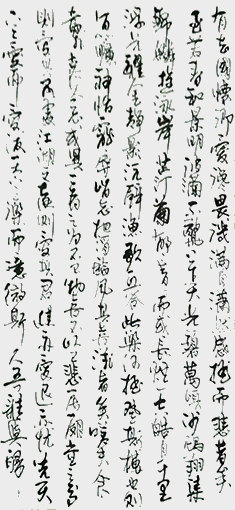 有去國懷鄉憂讒畏譏滿目蕭然感極而悲者矣
至若春和景明波瀾不驚上下天光一碧萬頃沙鷗翔集
錦鱗游泳岸芷汀蘭郁郁青青而或長煙一空皓月千里
浮光躍金靜影沉璧漁歌互答此樂何極登斯樓也則
有心曠神怡寵辱皆忘把酒臨風其喜洋洋者矣嗟夫予
嘗求古仁人之心或異二者之為不以物喜不以己悲居廟堂之高
則憂其民處江湖之遠則憂其君進亦憂退亦憂先天
下之憂而憂後天下之樂而噫微斯人吾誰與歸